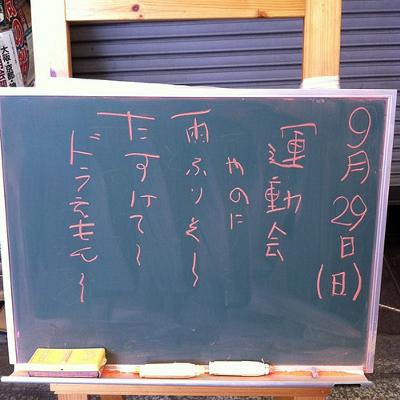 9月29日(日)
運動会
やのに
雨ふりそ〜
たすけて〜
ドラえもん〜